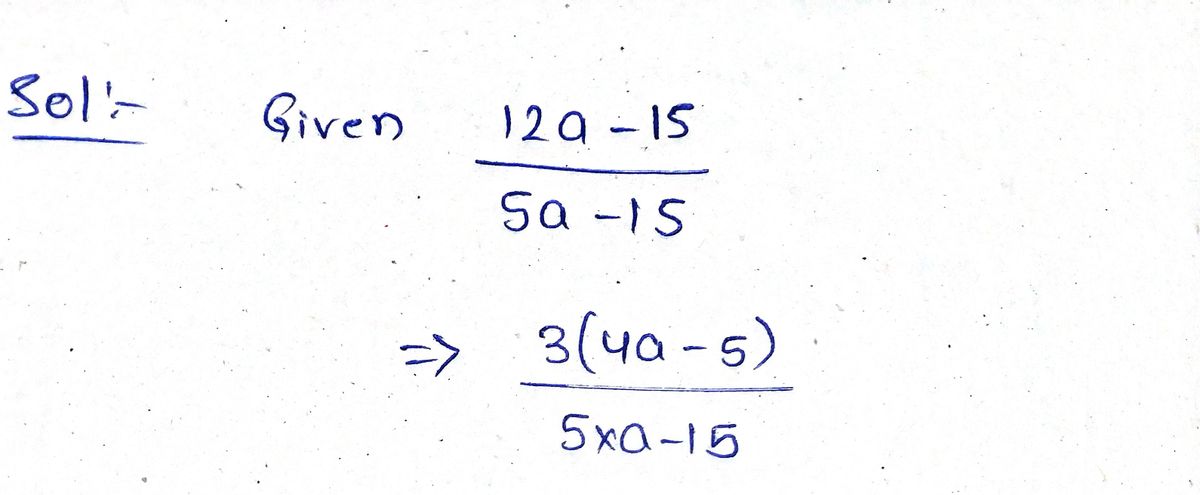 Sol:-
Given 12a - 15
5a - 15
=> 3(4a - 5)
5xa - 15